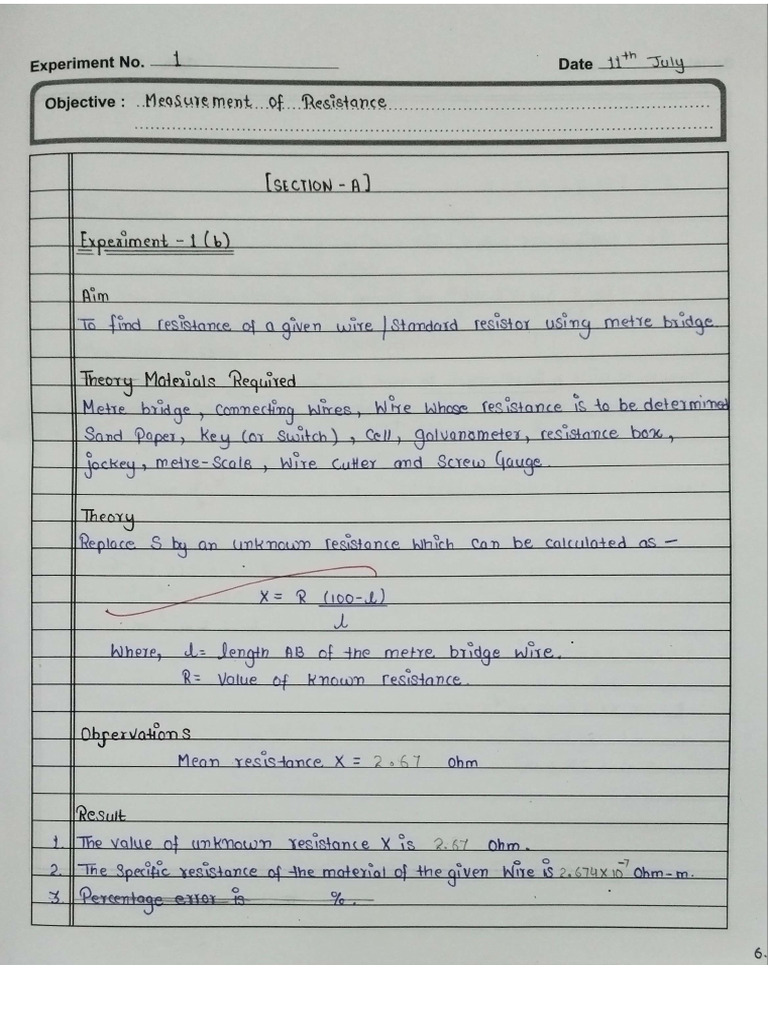 Experiment No. 1 Date 11th July
Objective : Measurement of Resistance
[SECTION - A]
Experiment - 1 (b)
Aim
To find resistance of a given wire / standard resistor using metre bridge.
Theory Materials Required
Metre bridge, connecting wires, wire whose resistance is to be determined
Sand Paper, key (or switch), cell, galvanometer, resistance box,
jockey, metre-scale, wire cutter and Screw Gauge.
Theory
Replace S by an unknown resistance which can be calculated as -
X = R (100-l)
l
Where, l = length AB of the metre bridge wire.
R = Value of known resistance.
Observations
Mean resistance X = 2.67 Ohm
Result
1. The value of unknown resistance X is 2.67 Ohm.
2. The Specific resistance of the material of the given wire is 2.674x10-7 Ohm-m.
3. Percentage error is %.
6.